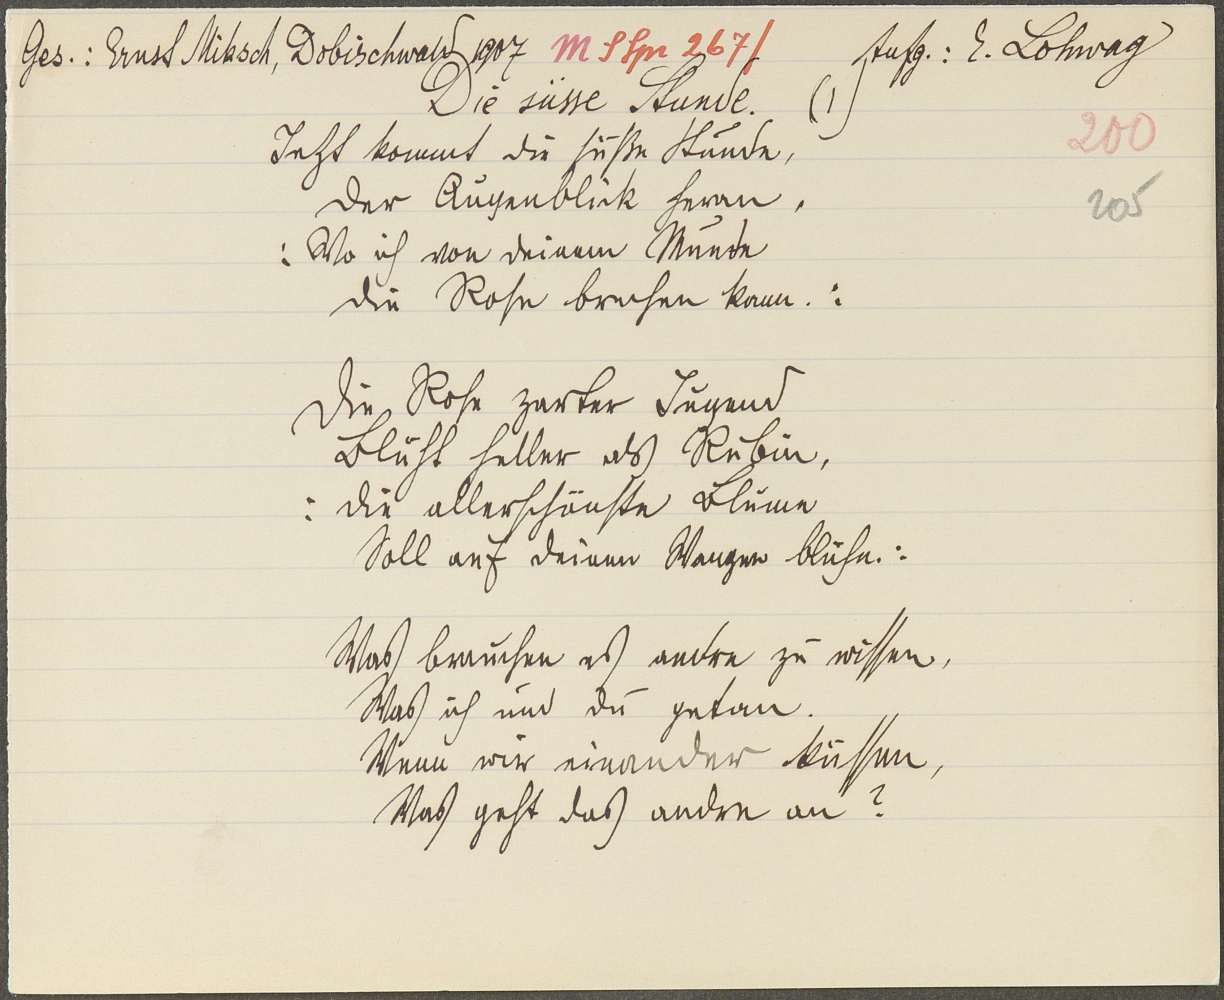 Ges.: Ernst Miksch, Dobischwald 1907 M S Spr 267/ Aufg.: E. Lohwag
Die süsse Stunde. (1)
Jetzt kommt die süße Stunde,
200
Der Augenblick heran,
205
: Wo ich von deinem Munde
die Rose brechen kann. :
Die Rose zarter Jugend
Blüht heller als Rubin,
: die allerschönste Blume
Soll auf deinen Wangen blühn. :
Was brauchen es andre zu wissen,
Was ich und du getan.
Wenn wir einander küssen,
Was geht das andre an?